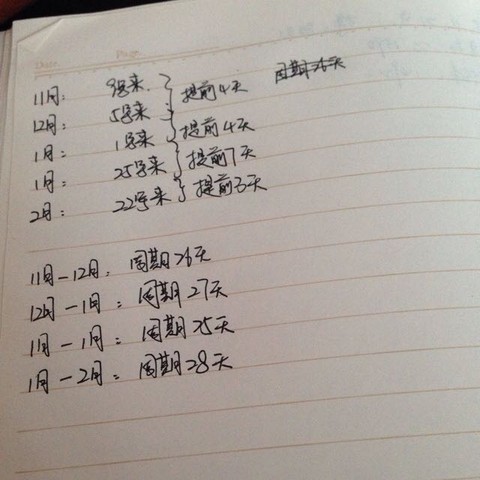 11月： 9号来. 提前4天 周期26天
12月： 5号来
1月： 1号来 提前4天
1月： 25号来 提前7天
2月： 22号来 提前3天
11月-12月： 周期26天
12月-1月： 周期27天
1月-1月： 周期25天
1月-2月： 周期28天